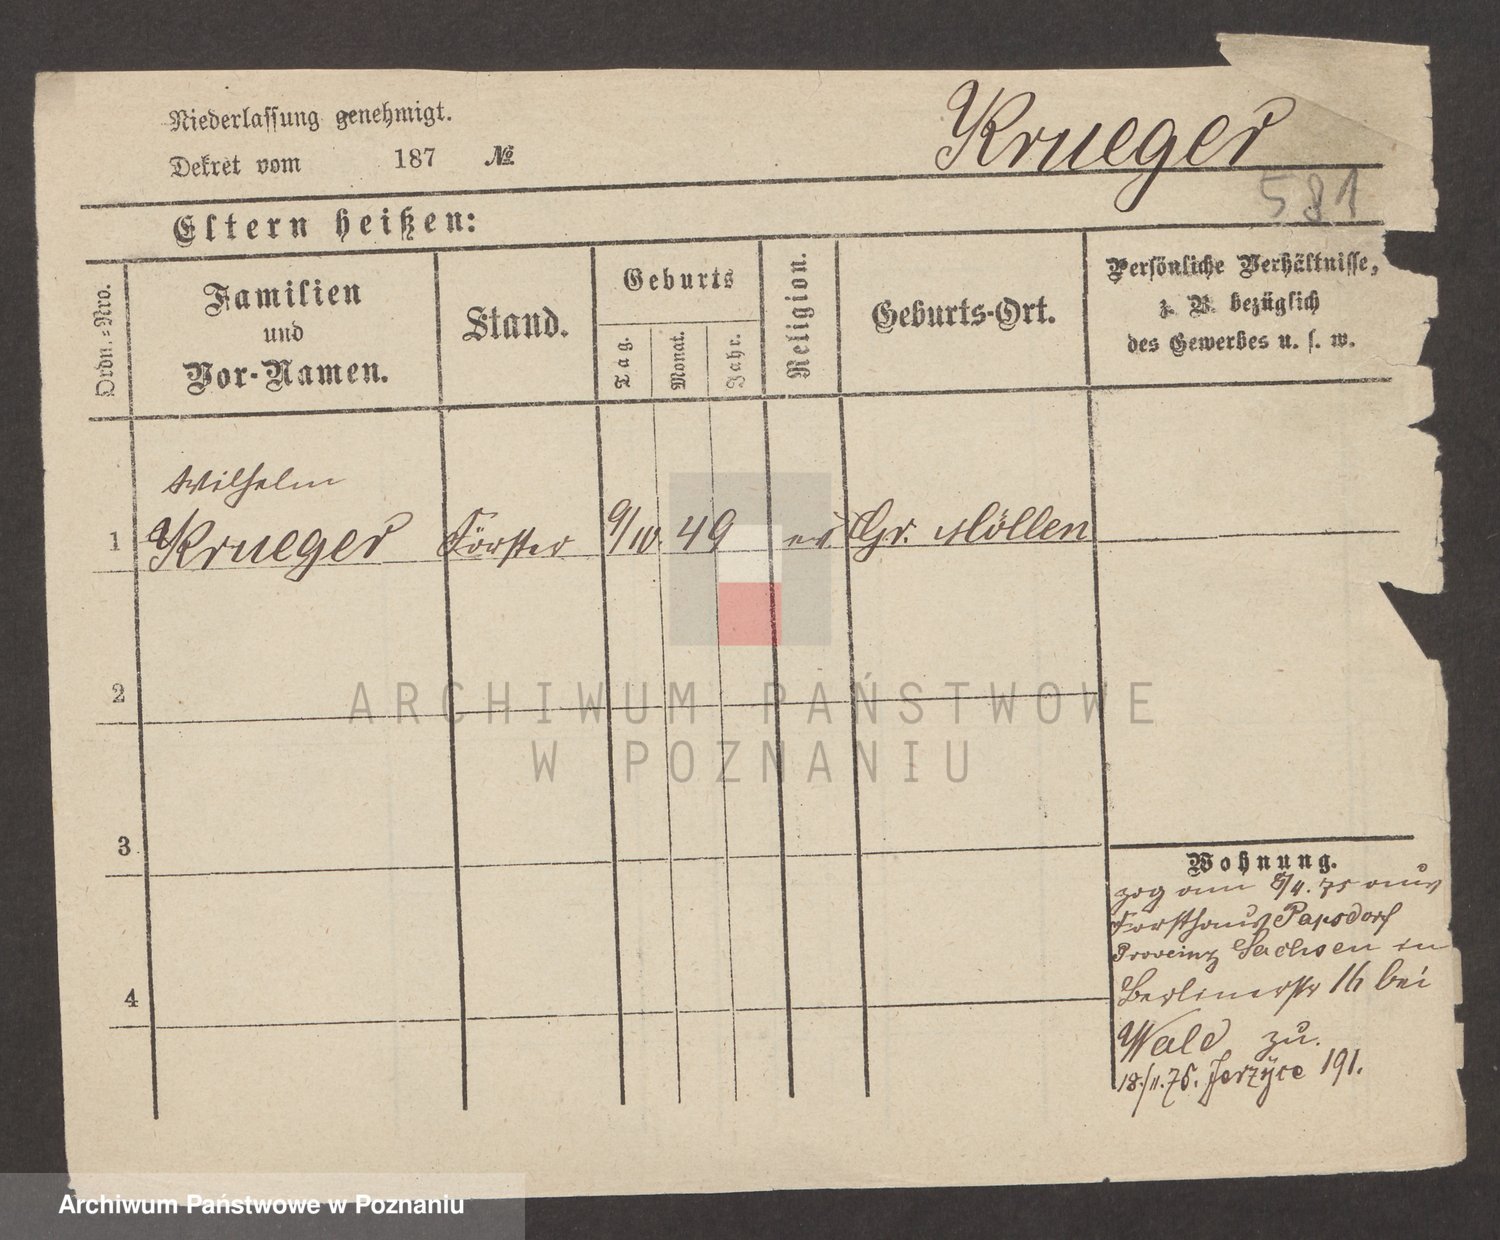 Niederlassung genehmigt.
Dekret vom 187 №
Krueger
581
Eltern heißen:
Ordn.-Nro.
Familien
und
Vor-Namen.
Stand.
Geburts
Tag.
Monat.
Jahr.
Religion.
Geburts-Ort.
Persönliche Verhältnisse,
z. B. bezüglich
des Gewerbes u. s. w.
Wilhelm
1 Krueger Förster 9/10. 49 ev. Gr. Möllen
2
3
4
Wohnung.
zog am 8/4. 75 aus
Forsthaus Papsdorf
Provinz Sachsen in
Berlinerstr 16 bei
Wald zu.
18./11. 75. Jerzyce 191.
ARCHIWUM PAŃSTWOWE
W POZNANIU
Archiwum Państwowe w Poznaniu